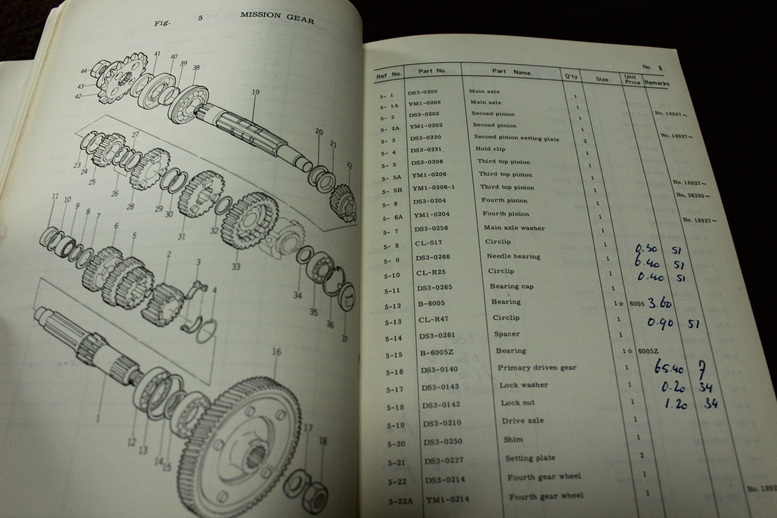 Fig. 5 MISSION GEAR
44
43
42
41
40
39
38
19
20
21
22
23
24
25
26
27
28
29
30
31
32
33
34
35
36
37
11
10
9
8
7
6
5
2
3
4
1
12
13
14
15
16
17
18
No. 5
Ref No. Part No. Part Name Q'ty Size Unit Price Remarks
5- 1 DS3-0209 Main axle 1
5- 1A YM1-0209 Main axle 1 No. 18927~
5- 2 DS3-0202 Second pinion 1
5- 2A YM1-0202 Second pinion 1 No. 18927~
5- 3 DS3-0230 Second pinion setting plate 2
5- 4 DS3-0231 Hold clip 1
5- 5 DS3-0206 Third top pinion 1
5- 5A YM1-0206 Third top pinion 1 No. 18927~
5- 5B YM1-0206-1 Third top pinion 1
5- 6 DS3-0204 Fourth pinion 1
5- 6A YM1-0204 Fourth pinion 1 No. 18927~
5- 7 DS3-0256 Main axle washer 1
5- 8 CL-S17 Circlip 1 0.50 51
5- 9 DS3-0266 Needle bearing 1 0.40 51
5-10 CL-R25 Circlip 1 0.40 51
5-11 DS3-0265 Bearing cap 1
5-12 B-6005 Bearing 1☆ 6005 3.60
5-13 CL-R47 Circlip 1 0.90 51
5-14 DS3-0261 Spacer 1
5-15 B-6005Z Bearing 1☆ 6005Z
5-16 DS3-0140 Primary driven gear 1 65.40 7
5-17 DS3-0143 Lock washer 1 0.20 34
5-18 DS3-0142 Lock nut 1 1.20 34
5-19 DS3-0210 Drive axle 1
5-20 DS3-0250 Shim 1
5-21 DS3-0227 Setting plate 2
5-22 DS3-0214 Fourth gear wheel 1
5-22A YM1-0214 Fourth gear wheel 1